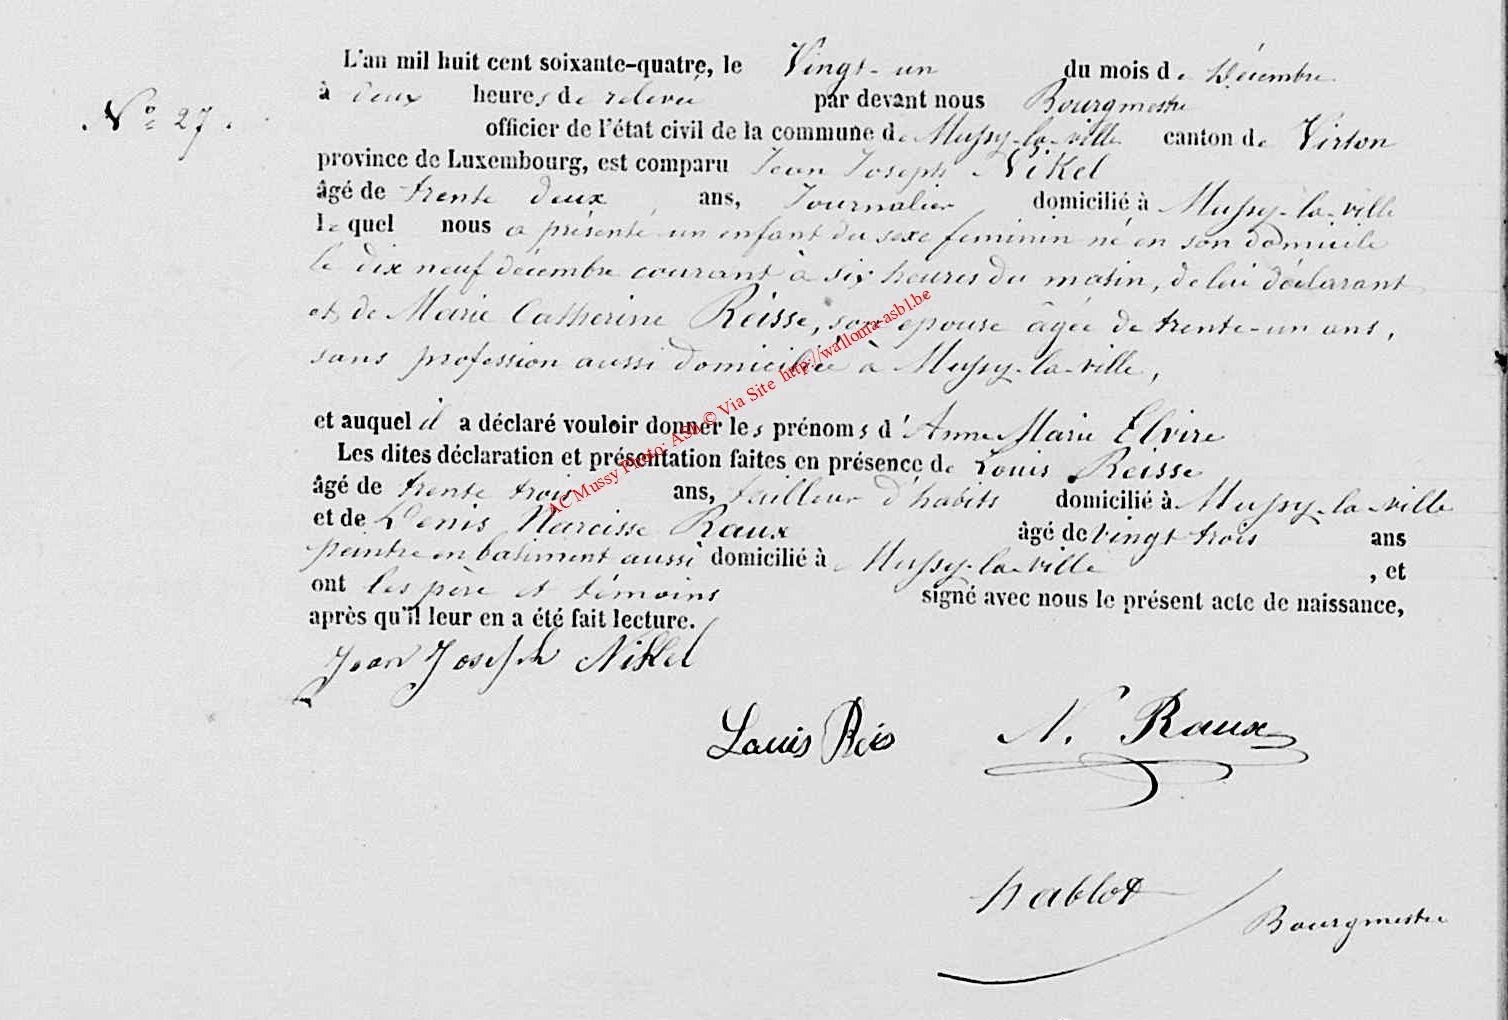 L'an mil huit cent soixante-quatre, le Vingt-un du mois de Décembre
à deux heures de relevée par devant nous Bourgmestre
Nº 27. officier de l'état civil de la commune de Mussy-la-ville canton de Virton
province de Luxembourg, est comparu Jean Joseph Nikel
âgé de trente deux ans, Journalier domicilié à Mussy-la-ville
lequel nous a présenté un enfant du sexe féminin né en son domicile
le dix neuf décembre courant à six heures du matin, de lui déclarant
et de Marie Catherine Reisse, son épouse âgée de trente-un ans,
sans profession aussi domiciliée à Mussy-la-ville,
et auquel il a déclaré vouloir donner les prénoms d'Anne Marie Elvire
Les dites déclaration et présentation faites en présence de Louis Reisse
âgé de trente trois ans, tailleur d'habits domicilié à Mussy-la-ville
et de Denis Narcisse Raux âgé de vingt trois ans
peintre en batiment aussi domicilié à Mussy-la-ville, et
ont les père et témoins signé avec nous le présent acte de naissance,
après qu'il leur en a été fait lecture.
Jean Joseph Nikel
Louis Reis N. Raux
hablot
Bourgmestre
AC Mussy Photo: Asbl © Via Site http://wallonia-asbl.be